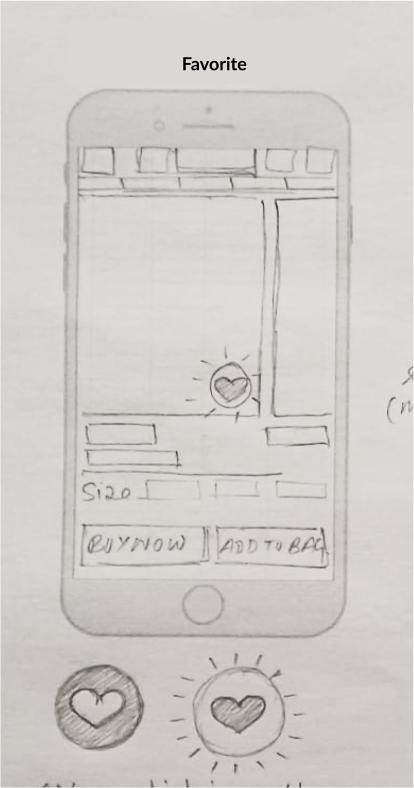 Favorite
Size
BUY NOW
ADD TO BAG